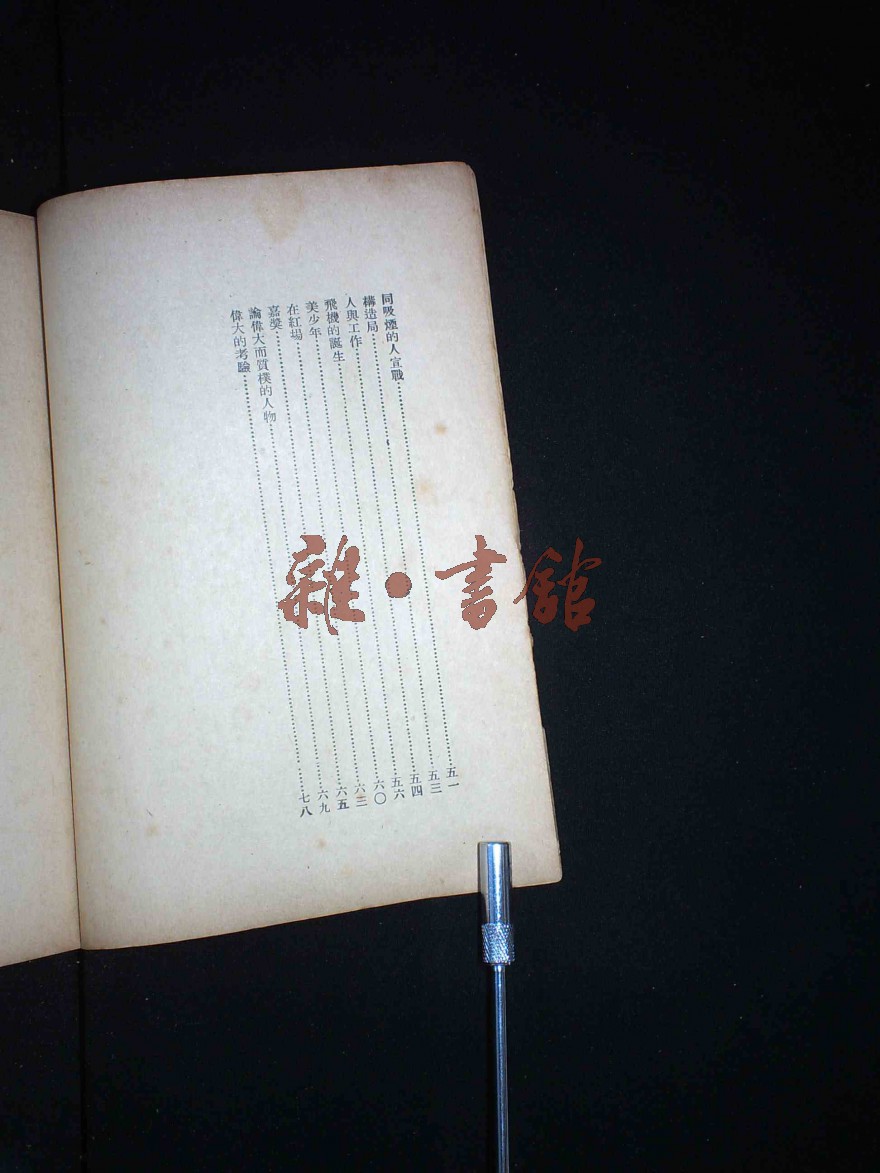 同吸煙的人宣戰……五一
構造局……五三
人與工作……五四
飛機的誕生……五六
美少年……六〇
在紅場……六三
嘉獎……六五
論偉大而質樸的人物……六九
偉大的考驗……七八
雜·書館